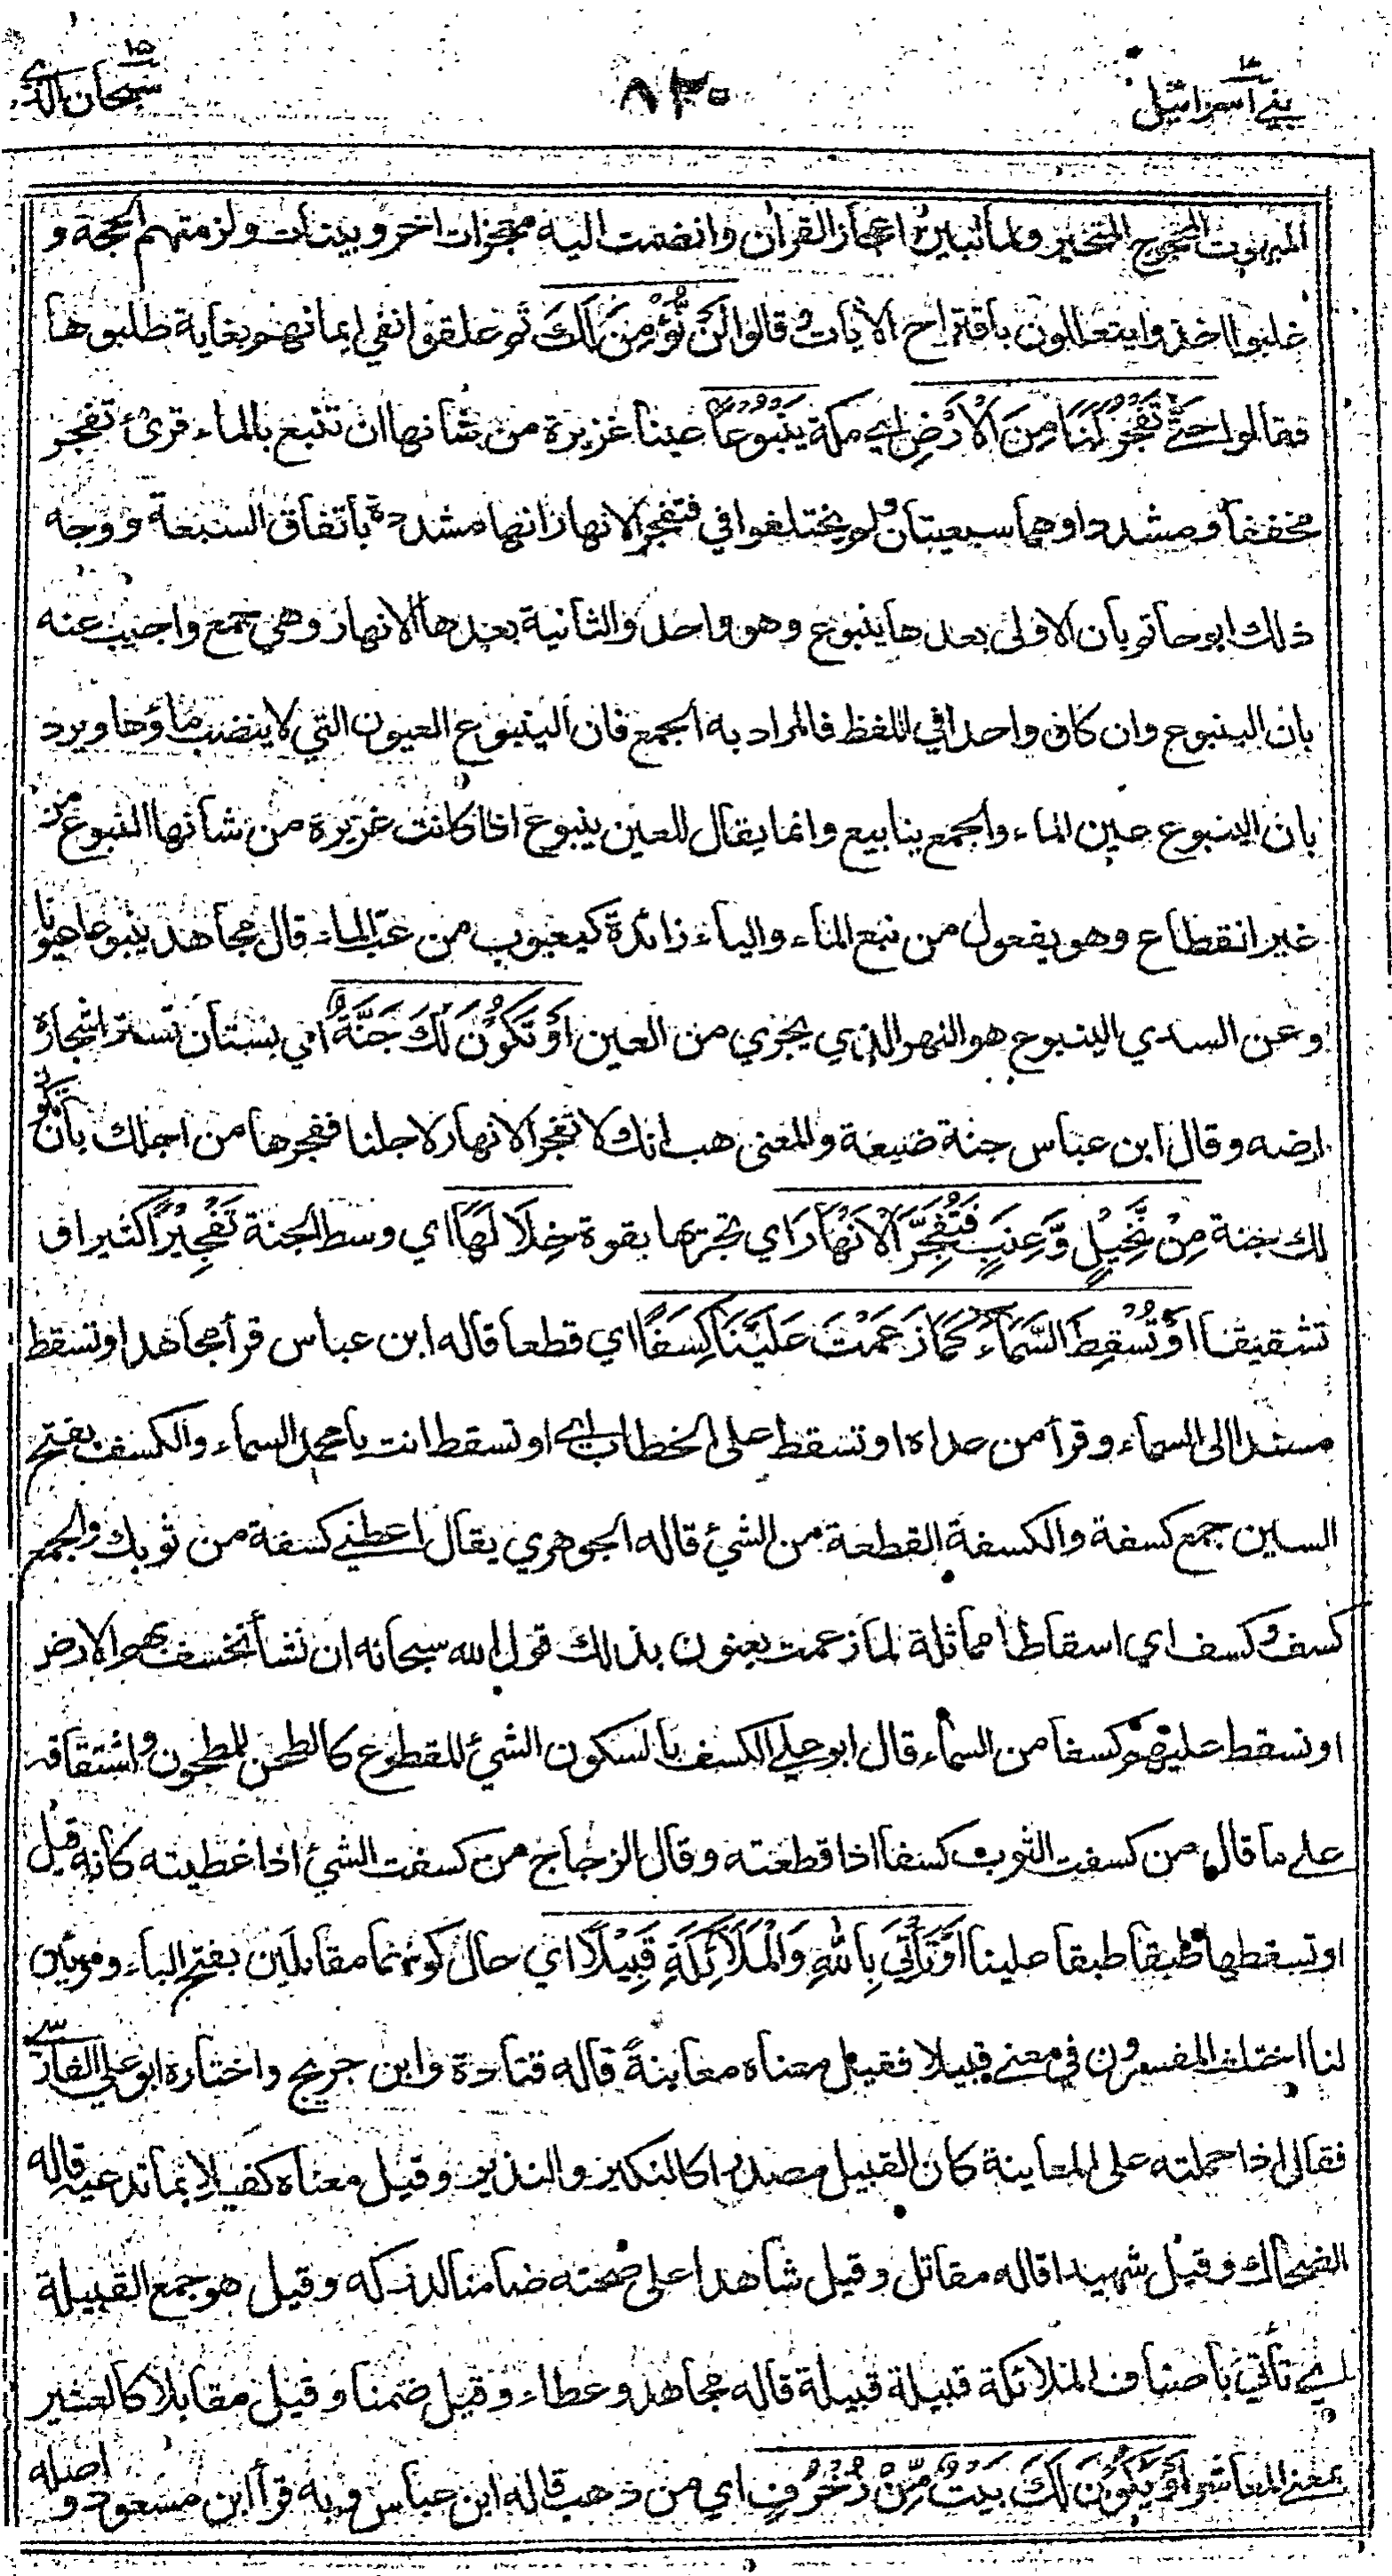 بني اسرائيل ١٧
٨٢٠
سبحان الذي ١٥
المبهوت المحجوج المتحير ولما تبين اعجاز القرأن وانضمت اليه معجزات اخر وبينات ولزمتهم الحجة و
غلبوا اخذ وا يتعللون باقتراح الأيات وقالوا لَنْ نُّؤْمِنَ لَكَ ثم علقوا نفي ايمانهم بغاية طلبوها
فقالوا حَتّٰى تَفْجُرَ لَنَا مِنَ الْاَرْضِ اي مكة يَنْبُوْعًا عينا غزيرة من شأنها ان تنبع بالماء قرئ تفجر
مخففا ومشددا وهما سبعيتان ولم يختلفوا في فتفجر الانهار انها مشددة باتفاق السبعة ووجه
ذلك ابو حاتم بان الاولى بعدها ينبوع وهو واحد والثانية بعدها الانهار وهي جمع واجيب عنه
بان الينبوع وان كان واحدا في اللفظ فالمراد به الجمع فان الينبوع العيون التي لا ينضب ماؤها ويرد
بان الينبوع عين الماء والجمع ينابيع وانما يقال للعين ينبوع اذا كانت غزيرة من شأنها النبوع من
غير انقطاع وهو يفعول من نبع الماء والياء زائدة كيعبوب من عب الماء قال مجاهد ينبوعا عيونا
وعن السدي الينبوع هو النهر الذي يجري من العين اَوْ تَكُوْنَ لَكَ جَنَّةٌ اي بستان تستر اشجاره
ارضه وقال ابن عباس جنة ضيعة والمعنى هب انك لا تفجر الانهار لاجلنا ففجرها من اجلك بان تكون
لك جنة مِنْ نَّخِيْلٍ وَّعِنَبٍ فَتُفَجِّرَ الْاَنْهَارَ اي تجريها بقوة خِلَالَهَا اي وسط الجنة تَفْجِيْرًا كثيرا او
تشقيقا اَوْ تُسْقِطَ السَّمَاءَ كَمَا زَعَمْتَ عَلَيْنَا كِسَفًا اي قطعا قاله ابن عباس قرأ مجاهد او تسقط
مسندا الى السماء وقرأ من عداه او تسقط على الخطاب اي او تسقط انت يا محمد السماء والكسف بفتح
السين جمع كسفة والكسفة القطعة من الشئ قاله الجوهري يقال اعطني كسفة من ثوبك والجمع
كسف وكسف اي اسقاطا مماثلة لما زعمت يعنون بذلك قول الله سبحانه ان نشأ نخسف بهم الارض
او نسقط عليهم كسفا من السماء قال ابو علي الكسف بالسكون الشئ المقطوع كالطحن للمطحون واشتقاقه
على ما قال من كسفت الثوب كسفا اذا قطعته وقال الزجاج من كسفت الشئ اذا غطيته كانه قيل
او تسقطها طبقا طبقا علينا اَوْ تَأْتِيَ بِاللّٰهِ وَالْمَلَائِكَةِ قَبِيْلًا اي حال كونهما مقابلين بفتح الباء ومرئيين
لنا اختلف المفسرون في معنى قبيلا فقيل معناه معاينةً قاله قتادة وابن جريج واختاره ابو علي الفارسي
فقال اذا حملته على المعاينة كان القبيل مصدرا كالنكير والنذير وقيل معناه كفيلا بما تدعيه قاله
الضحاك وقيل شهيدا قاله مقاتل وقيل شاهدا على صحته ضامنا لدركه وقيل هو جمع القبيلة
اي تأتي باصناف الملائكة قبيلة قبيلة قاله مجاهد وعطاء وقيل ضمنا وقيل مقابلا كالعشير
بمعنى المعاشر اَوْ يَكُوْنَ لَكَ بَيْتٌ مِّنْ زُخْرُفٍ اي من ذهب قاله ابن عباس وبه قرأ ابن مسعود واصله